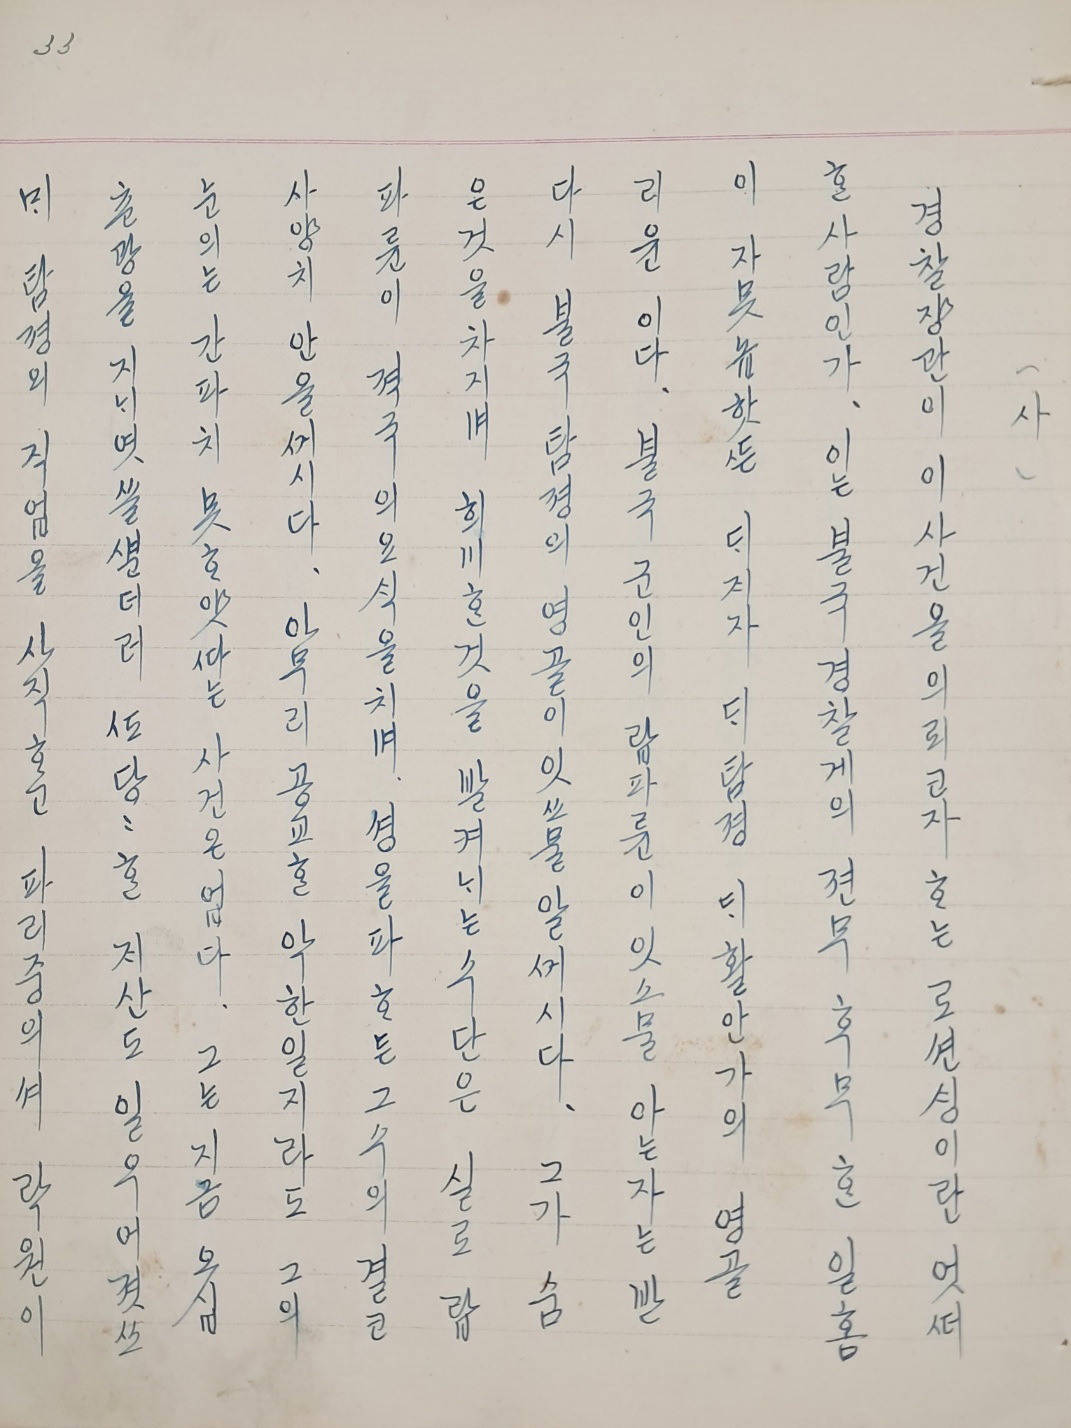 33
(사)
경찰장관이 이사건을의뢰고자 ᄒᆞ는 로션싱이란 엇ᄯᅥ
ᄒᆞᆫ사람인가、이는 불국 경찰계의 젼무 후무 ᄒᆞᆫ 일홈
이 자못 ᄃᆡ지자 ᄃᆡ탐졍 ᄃᆡ활안가의 영골
리운이다、불국 군인의 랍파륜이 잇스물 아는자는 ᄯᅡᆫ
다시 불국 탐졍의 영골이잇쓰물 알ᄭᅦ시다、그가 숨
은것을차지며 희ᄀᆡᄒᆞᆫ것을 발켜ᄂᆡ는수단은 실로 랍
파륜이 젹국의요ᄉᆡᆨ을치며、셩을파ᄒᆞ든 그수의 결코
사양치 안을ᄭᅦ시다、아무리 공교ᄒᆞᆯ 악한일지라도 그의
눈의는 간파치 못ᄒᆞ얏ᄯᅡ는 사건은업다、그는지금 오십
츈광을 지ᄂᆡ엿쓸ᄲᅮᆫ더러 ᄯᅩ당〻ᄒᆞᆯ 지산도 일우어겻쓰
ᄆᆡ 탐졍의 직업을 사직ᄒᆞ고 파리즁의셔 락원이